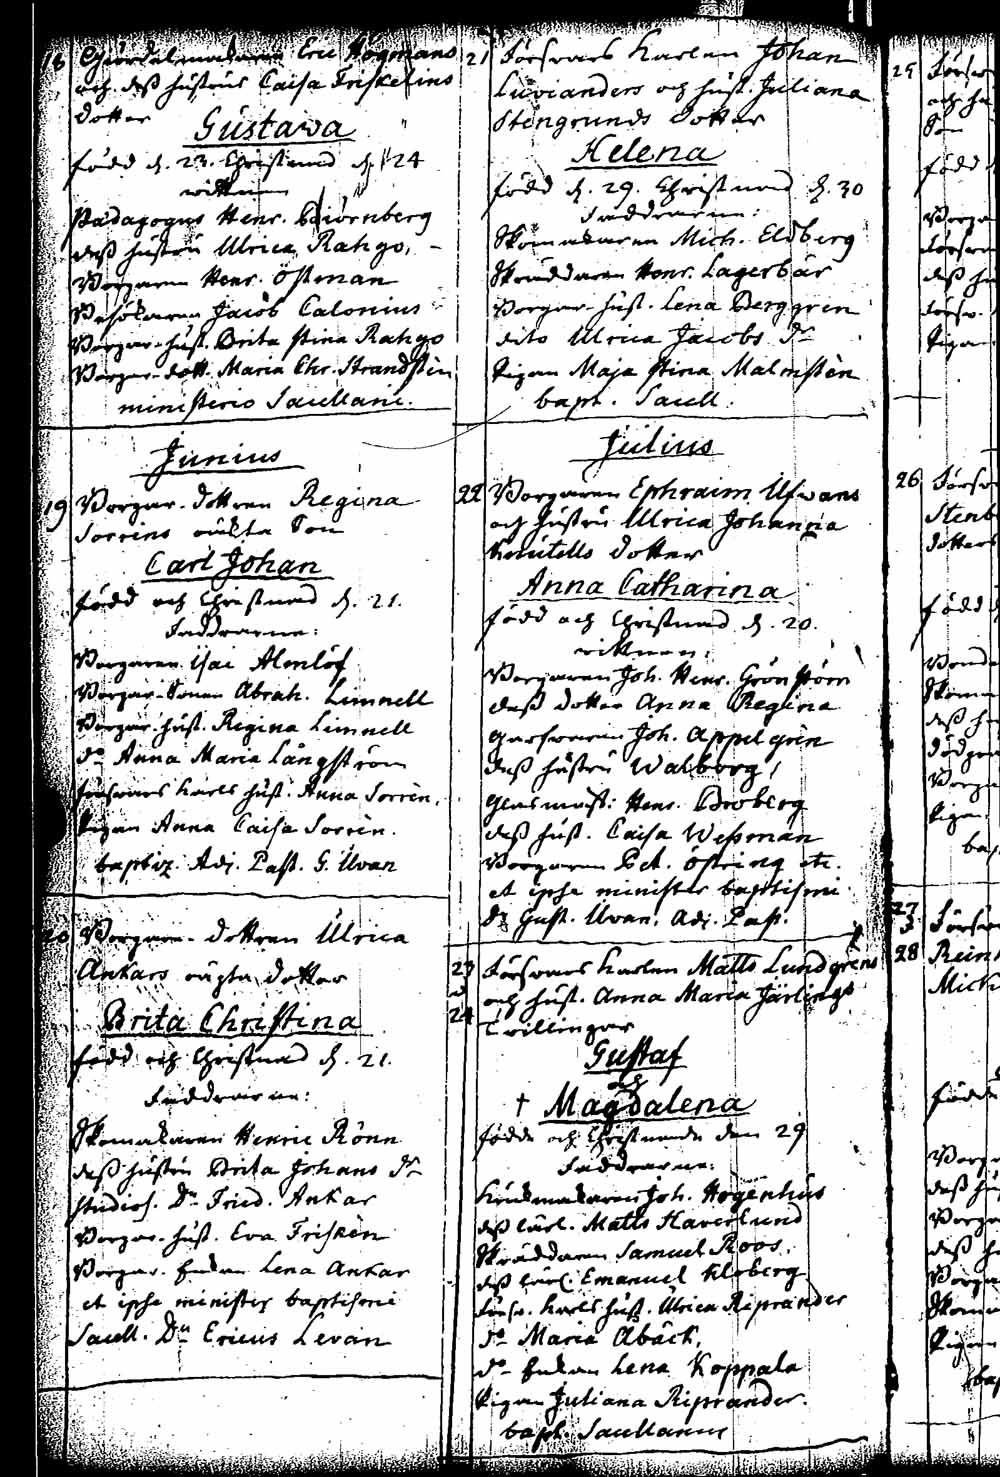 18 Giördelmakaren Eric Högmans
och dess hustrus Caisa Friskelius
dotter
Gustava
född d. 23. Christnad d. 24
vittnen
Pædagogus Henr. Biörnberg
dess hustru Ulrica Rahgo,
Borgaren Henr. Östman
Besökaren Jacob Calonius
Borgar-hust. Brita Stina Rahgo
Borgar-dott. Maria Chr. Strandsten
ministerio Sacellani.
Junius
19 Borgar-dottren Regina
Sorrins oäkta Son
Carl Johan
född och Christnad d. 21.
Faddrarne:
Borgaren Isac Almlöf
Borgar-Sonen Abrah. Limnell
Borgar-hust. Regina Limnell
do Anna Maria Långström
försvars Karls hust. Anna Sorrin.
Pigan Anna Caisa Sorrin.
baptiz. Adj. Past. G. Ulvan
20 Borgare-dottren Ulrica
Ankars oägta dotter
Brita Christina
född och Christnad d. 21.
Faddrarne:
Skomakaren Henric Rönn
dess hustru Brita Johans dr
Studios. Dn Fried. Ankar
Borgar-hust. Eva Friskèn
Borgar-Enkan Lena Ankar
et ipse minister baptismi
Sacell. Dn Ericus Levan
21 Försvars Karlen Johan
Luvianders och hust. Juliana
Stengrunds dotter
Helena
född d. 29. Christnad d. 30
Faddrarne:
Skomakaren Mich. Eldberg
Skräddaren Henr. Lagerbär
Borgar-hust. Lena Berggren
dito Ulrica Jacobs dr
Pigan Maja Stina Malmsten
bapt. Sacell.
Julius
22 Borgaren Ephraim Ulfvans
och hustru Ulrica Johanna
Knutells dotter
Anna Catharina
född och Christnad d. 20.
vittnen:
Borgaren Joh. Henr. Grönström
dess dotter Anna Regina
Garfvaren Joh. Appelgrin
dess hustru Walborg,
Glasmäst: Henr. Broberg
dess hust. Caisa Wessman
Borgaren Pet. Östring etc.
et ipse minister baptismi
Dn Gust. Ulvan. Adj. Past.
23 Försvars Karlen Matts Lundgrens
och hust. Anna Maria Järlings
24 Tvillingar
Gustaf
och
† Magdalena
födde och Christnade den 29
Faddrarne:
Joh. Högenhus
dess lärl. Matts Haverlund
Skräddaren Samuel Roos,
dess lärl. Emanuel Kloberg
Försv. Karls hust. Ulrica Riprander
do Maria Åbäck,
do Enkan Lena Koppala
Pigan Juliana Riprander.
bapt. Sacellanus
25 Försv
och hu
Son
född d
Borga
Försvar
dess hu
försv.
Pigan
26 Försv
Stenb
dotters
född
dess h
Pigan
bap
27
28 Försva
Rein
Mich
födde
Borga
dess hu
Borga
dess h
Borga
Skoma
Pigan
bap